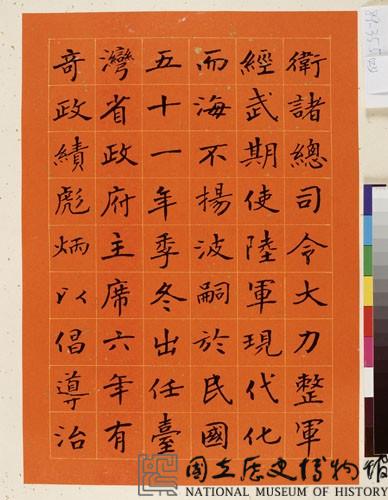 衛諸總司令大力整軍
經武期使陸軍現代化
而海不揚波嗣於民國
五十一年季冬出任臺
灣省政府主席六年有
奇政績彪炳以倡導治
國立歷史博物館
NATIONAL MUSEUM OF HISTORY